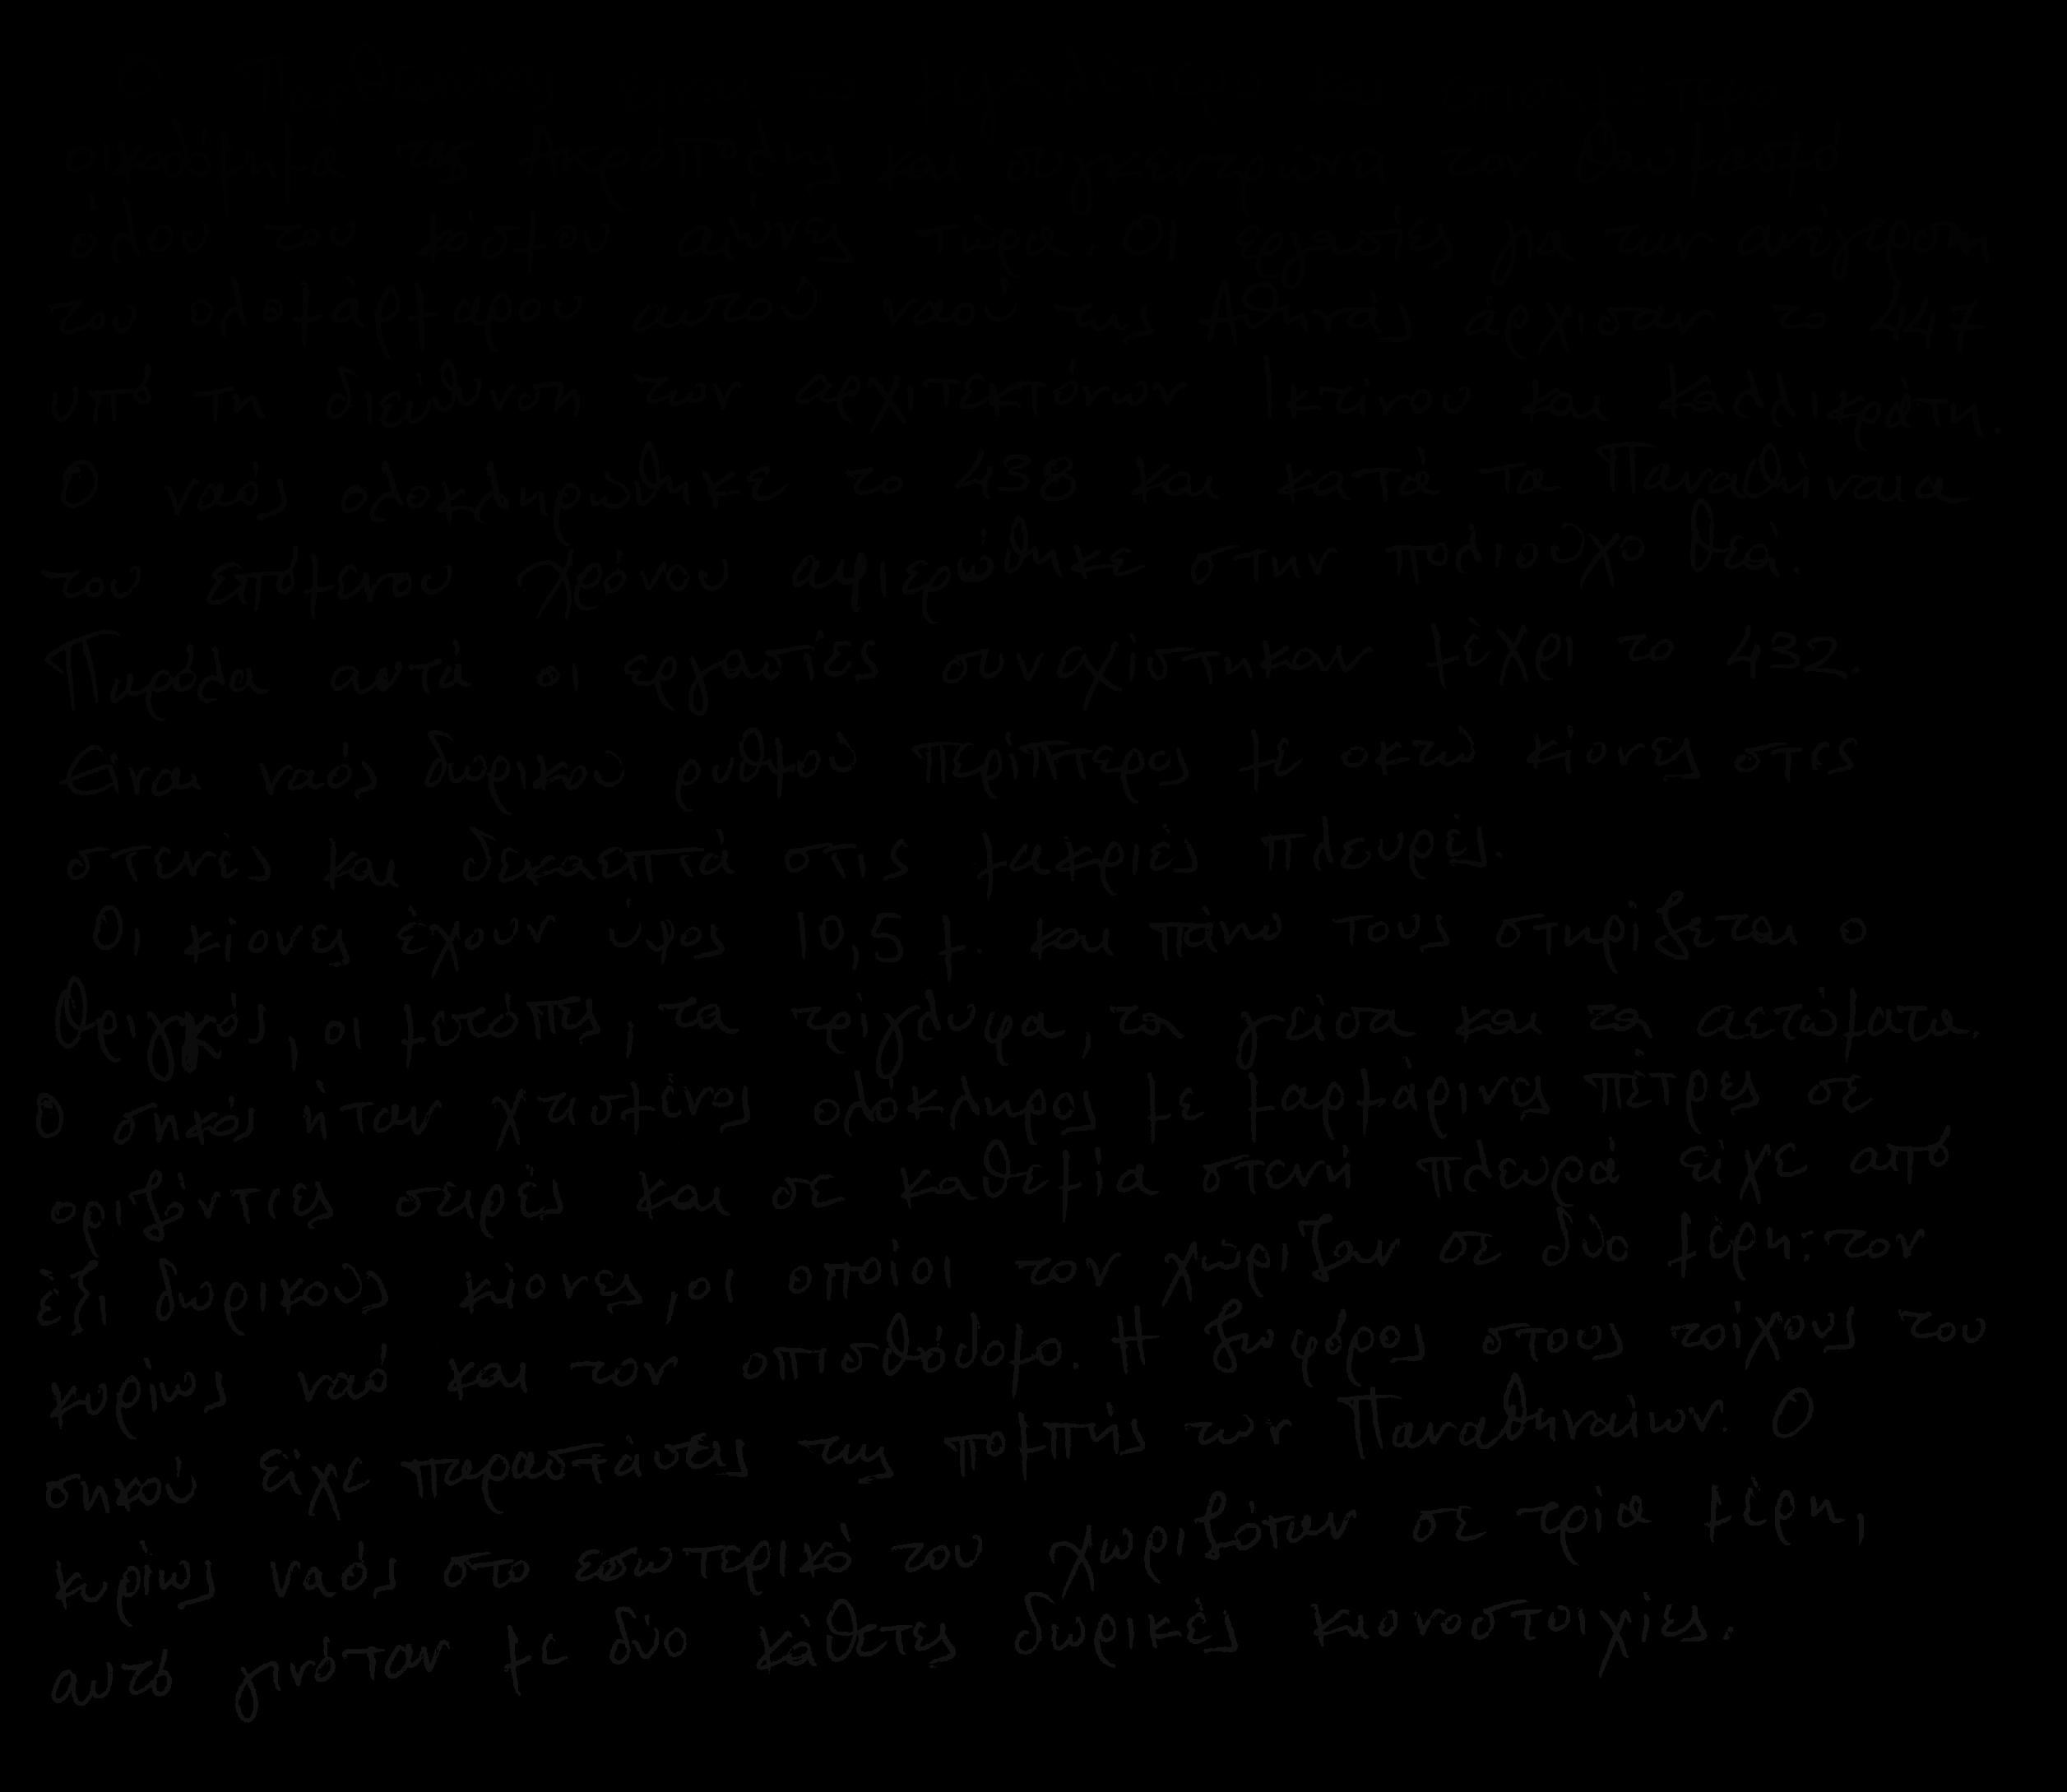 Ο Παρθενώνας είναι το
οικοδόμημα της Ακρόπολης και συγκεντρώνει τον θαυμασμό
όλου του κόσμου αιώνες τώρα. Οι εργασίες για των ανέγερση
του ολομάρμαρου αυτού ναού της Αθηνάς άρχισαν το 447
υπό τη διεύθυνση των αρχιτεκτόνων Ικτίνου και Καλλικράτη.
Ο ναός ολοκληρώθηκε το 438 και κατά τα Παναθήναια
του επόμενου χρόνου αφιερώθηκε στην πολιούχο θεά.
Παρόλα αυτά οι εργασίες συναχίστηκαν μέχρι το 432.
Είναι ναός δωρικού ρυθμού περίπτερος με οκτώ κίονες στες
στενές και δεκαεπτά στις μακριές πλευρές.
Οι κίονες έχουν ύψος 10,5 μ. και πάνω τους στηρίζεται ο
θριγκός, οι μετόπες, τα τρίγλυφα, τα γείσα και τα αετώματα.
Ο σηκός ήταν χτισμένος ολόκληρος με μαρμάρινες πέτρες σε
οριζόντιες σειρές και σε καθεμία στενή πλευρά είχε από
έξι δωρικούς κίονες, οι οποίοι τον χώριζαν σε δύο μέρη: τον
κυρίως ναό και τον οπισθόδομο. Η ζωφόρος στους τοίχους του
σηκού είχε παραστάσεις της πομπής των Παναθηναίων. Ο
κυρίως ναός στο εσωτερικό του χωριζόταν σε τρία μέρη,
αυτό γινόταν με δύο κάθετες δωρικές κιονοστοιχίες.